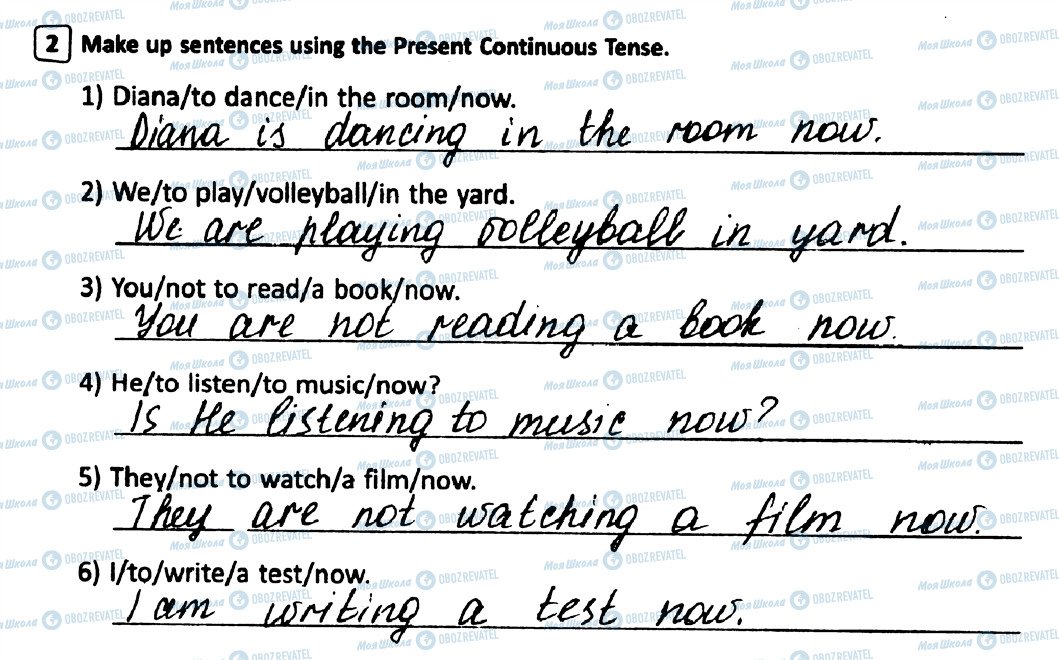 2 Make up sentences using the Present Continuous Tense.
1) Diana/to dance/in the room/now.
Diana is dancing in the room now.
2) We/to play/volleyball/in the yard.
We are playing volleyball in yard.
3) You/not to read/a book/now.
You are not reading a book now.
4) He/to listen/to music/now?
Is He listening to music now?
5) They/not to watch/a film/now.
They are not watching a film now.
6) I/to/write/a test/now.
I am writing a test now.
МояШкола OBOZREVATEL